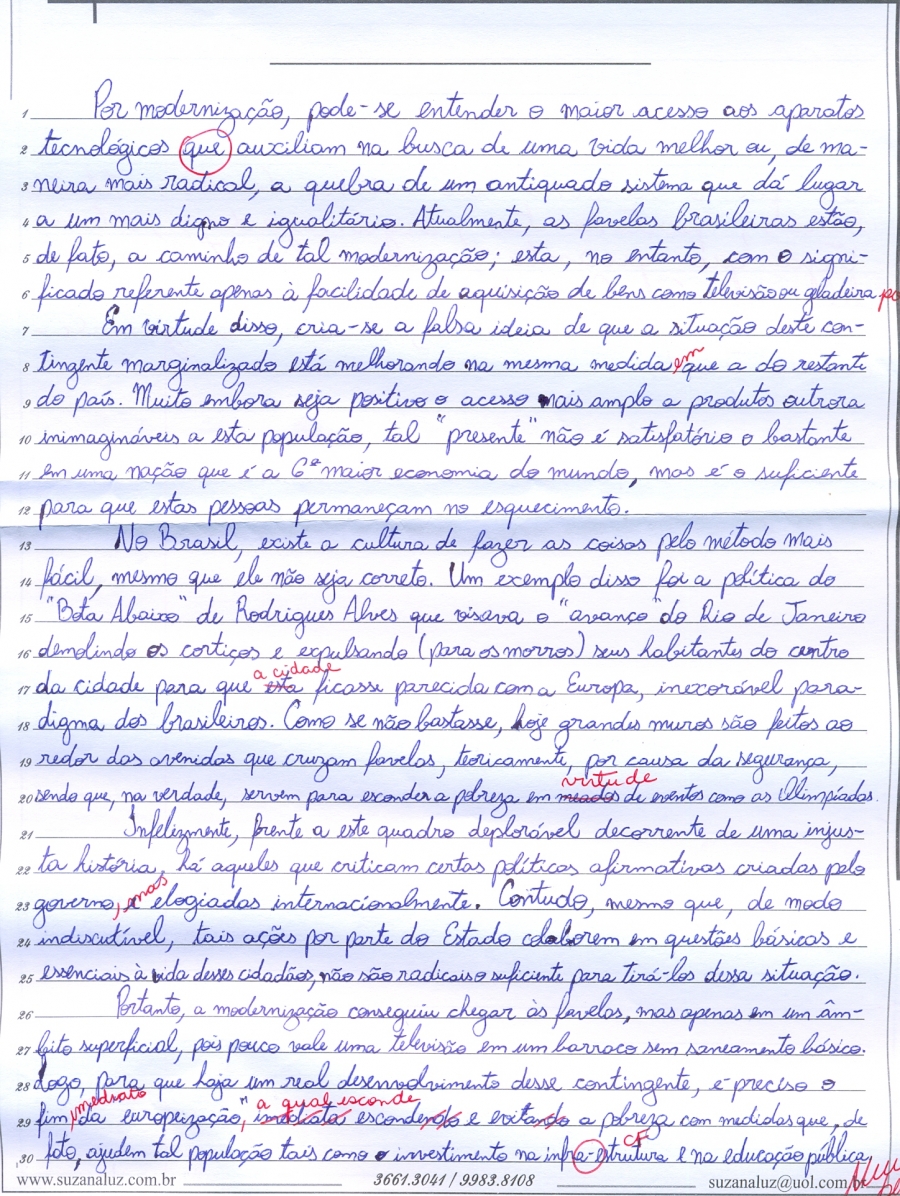 1 Por modernização, pode-se entender o maior acesso aos aparatos
2 tecnológicos que auxiliam na busca de uma vida melhor ou, de ma-
3 neira mais radical, a quebra de um antiquado sistema que dá lugar
4 a um mais digno e igualitário. Atualmente, as favelas brasileiras estão,
5 de fato, a caminho de tal modernização; esta, no entanto, com o signi-
6 ficado referente apenas à facilidade de aquisição de bens como televisão ou geladeira
7 Em virtude disso, cria-se a falsa ideia de que a situação deste con-
em
8 tingente marginalizado está melhorando na mesma medida que a do restante
9 do país. Muito embora seja positivo o acesso mais amplo a produtos outrora
10 inimagináveis a esta população, tal "presente" não é satisfatório o bastante
11 em uma nação que é a 6ª maior economia do mundo, mas é o suficiente
12 para que estas pessoas permaneçam no esquecimento.
13 No Brasil, existe a cultura de fazer as coisas pelo método mais
14 fácil, mesmo que ele não seja correto. Um exemplo disso foi a política do
15 "Bota Abaixo" de Rodrigues Alves que visava o "avanço" do Rio de Janeiro
16 demolindo os cortiços e expulsando (para os morros) seus habitantes do centro
a cidade
17 da cidade para que esta ficasse parecida com a Europa, inexorável para-
18 digma dos brasileiros. Como se não bastasse, hoje grandes muros são feitos ao
19 redor das avenidas que cruzam favelas, teoricamente, por causa da segurança,
virtude
20 sendo que, na verdade, servem para esconder a pobreza em meados de eventos como as Olimpíadas.
21 Infelizmente, frente a este quadro deplorável decorrente de uma injus-
22 ta história, há aqueles que criticam certas políticas afirmativas criadas pelo
, mas
23 governo e elogiadas internacionalmente. Contudo, mesmo que, de modo
24 indiscutível, tais ações por parte do Estado colaborem em questões básicas e
25 essenciais à vida desses cidadãos, não são radicais o suficiente para tirá-los dessa situação.
26 Portanto, a modernização conseguiu chegar às favelas, mas apenas em um âm-
27 bito superficial, pois pouco vale uma televisão em um barraco sem saneamento básico.
28 Logo, para que haja um real desenvolvimento desse contingente, é preciso o
imediato a qual esconde
29 fim da europeização, imediata escondendo e evitando a pobreza com medidas que, de
CF
30 fato, ajudem tal população tais como o investimento na infra-estrutura e na educação pública
www.suzanaluz.com.br 3661.3041 / 9983.8108 suzanaluz@uol.com.br